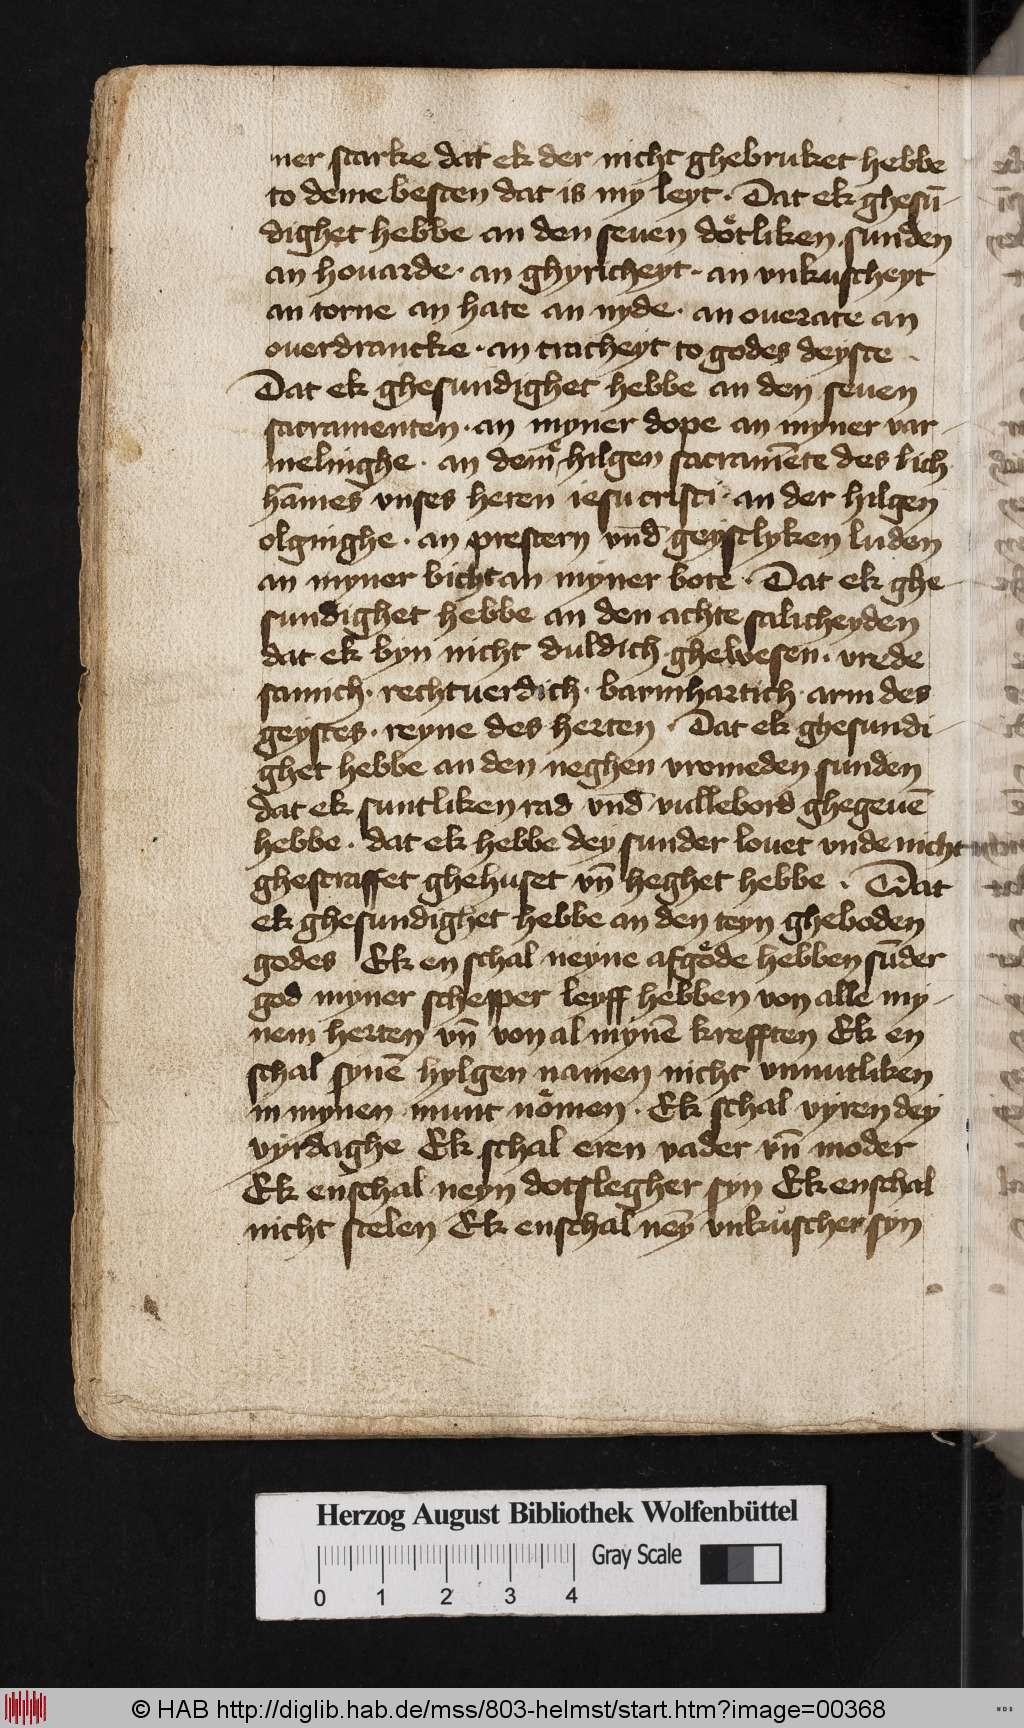 ner starke dat ek der nicht ghebruket hebbe
to deme besten dat is my leyt · Dat ek ghesū-
dighet hebbe an den seuen doͤtliken sunden
an houarde · an ghyricheyt · an vnkuscheyt
an torne an hate an nyde · an ouerate an
ouerdrancke · an tracheyt to godes deyste ·
Dat ek ghesundighet hebbe an den seuen
sacramenten · an myner dope an myner var-
melinghe · an dem hilgen sacramēte des lich
hāmes vnses heren iesu cristi · an der hilgen
olginghe · an prestern vnd̄ geystlyken luden
an myner bicht an myner bote · Dat ek ghe-
sundighet hebbe an den achte salicheyden
dat ek byn nicht duldich ghewesen · vrede
samich · rechtuerdich · barmhartich · arm des
geystes · reyne des herten · Dat ek ghesundi-
ghet hebbe an den neghen vromeden sunden
dat ek suntliken rad vnd̄ vullebord ghegeuē
hebbe · dat ek hebbe dey sunder louet vnde nicht
ghestraffet ghehuset vn̄ heghet hebbe · Dat
ek ghesundighet hebbe an den teyn gheboden
godes Ek en schal neyne afgoͤde hebben sūder
god myner schepper leyff hebben von alle my-
nem herten vn̄ von al mynē krefften Ek en
schal synē hylgen namen nicht vnnutliken
in mynen munt noͤmen · Ek schal vyren dey
vyrdaghe Ek schal eren vader vn̄ moder
Ek enschal neyn dotslegher syn Ek enschal
nicht stelen Ek enschal nēy vnkuscher syn
Herzog August Bibliothek Wolfenbüttel
Gray Scale
0 1 2 3 4
© HAB http://diglib.hab.de/mss/803-helmst/start.htm?image=00368